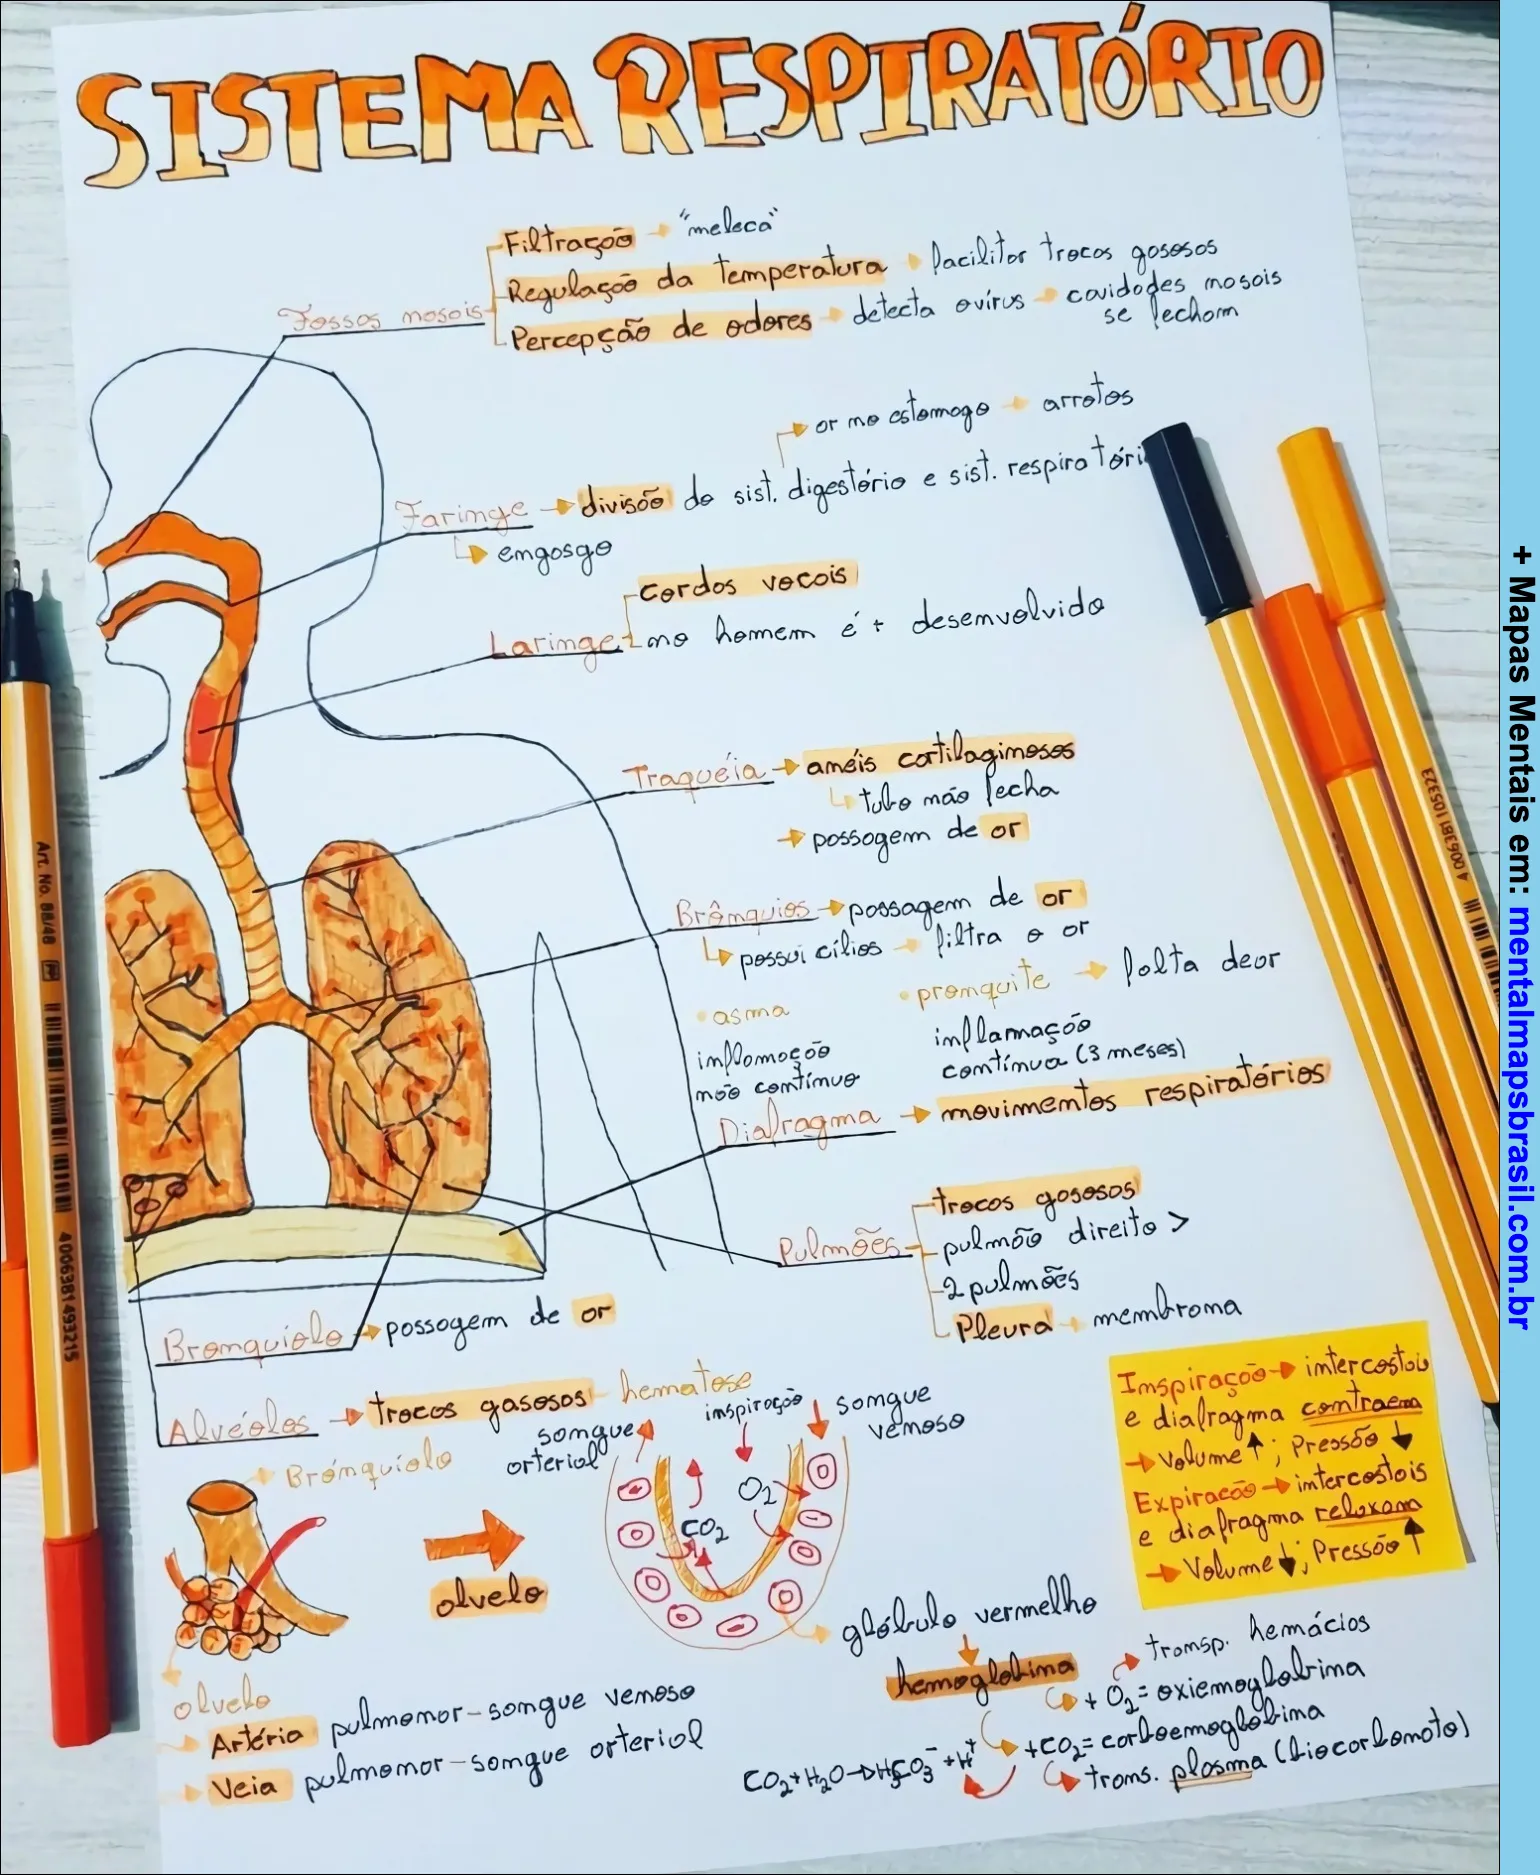 SISTEMA RESPIRATÓRIO
Fossas nasais
Filtração → "meleca"
Regulação da temperatura → facilitar trocas gasosas
Percepção de odores → detecta o vírus → cavidades nasais
se fecham
ar no estomago → arrotos
Faringe → divisão do sist. digestório e sist. respiratóri
engasgo
Laringe
cordas vocais
no homem é + desenvolvida
Traquéia → anéis cartilaginosos
tubo não fecha
→ passagem de ar
Brônquios → passagem de ar
possui cílios → filtra o ar
• asma
inflamação
não contínua
• pronquite → falta de ar
inflamação
contínua (3 meses)
Diafragma → movimentos respiratórios
Pulmões
trocas gasosas
pulmão direito >
2 pulmões
Pleura → membrana
Bronquíolo → passagem de ar
Alvéolos → trocas gasosas - hematose
Brônquíolo
alvelo
alvelo
sangue
arterial
inspiração
sangue
venoso
O2
CO2
glóbulo vermelho
hemoglobina
transp. hemácias
+ O2 = oxiemoglobina
+CO2 = carboemoglobina
trans. plasma (biocarbonato)
CO2+H2O→H3CO3⁻ + H⁺
Artéria pulmonar - sangue venoso
Veia pulmonar - sangue arterial
Inspiração → intercostais
e diafragma contraem
→ Volume ↑; Pressão ↓
Expiração → intercostais
e diafragma relaxam
→ Volume ↓; Pressão ↑
Art. No. 88/48
4006381493215
4006381105323
+ Mapas Mentais em: mentalmapsbrasil.com.br